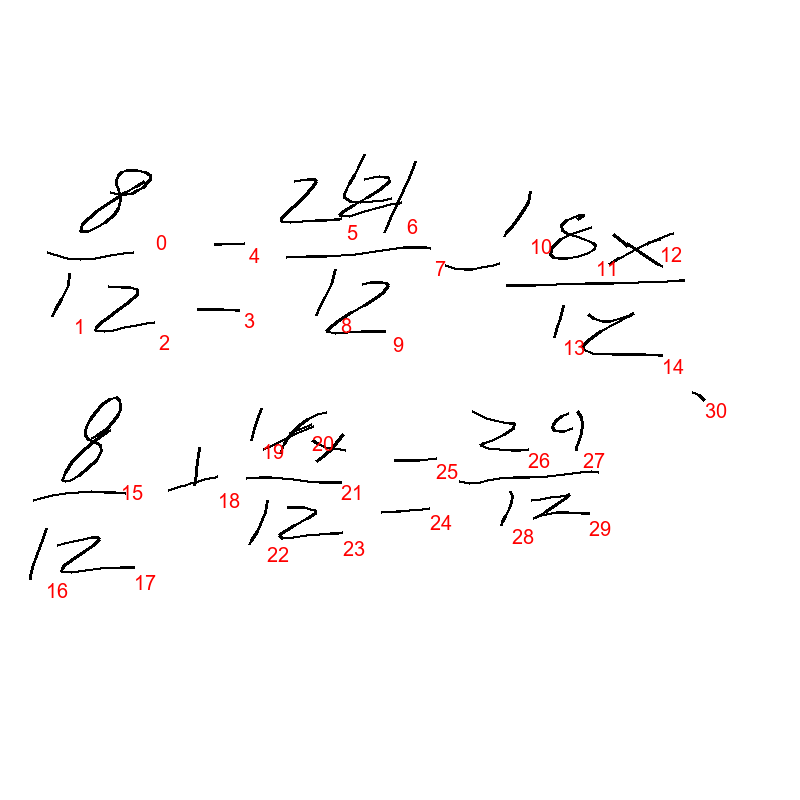 8/12 = 29/12 - 18x/12
8/12 + 18x/12 = 29/12
0 1 2 3 4 5 6 7 8 9 10 11 12 13 14 15 16 17 18 19 20 21 22 23 24 25 26 27 28 29 30